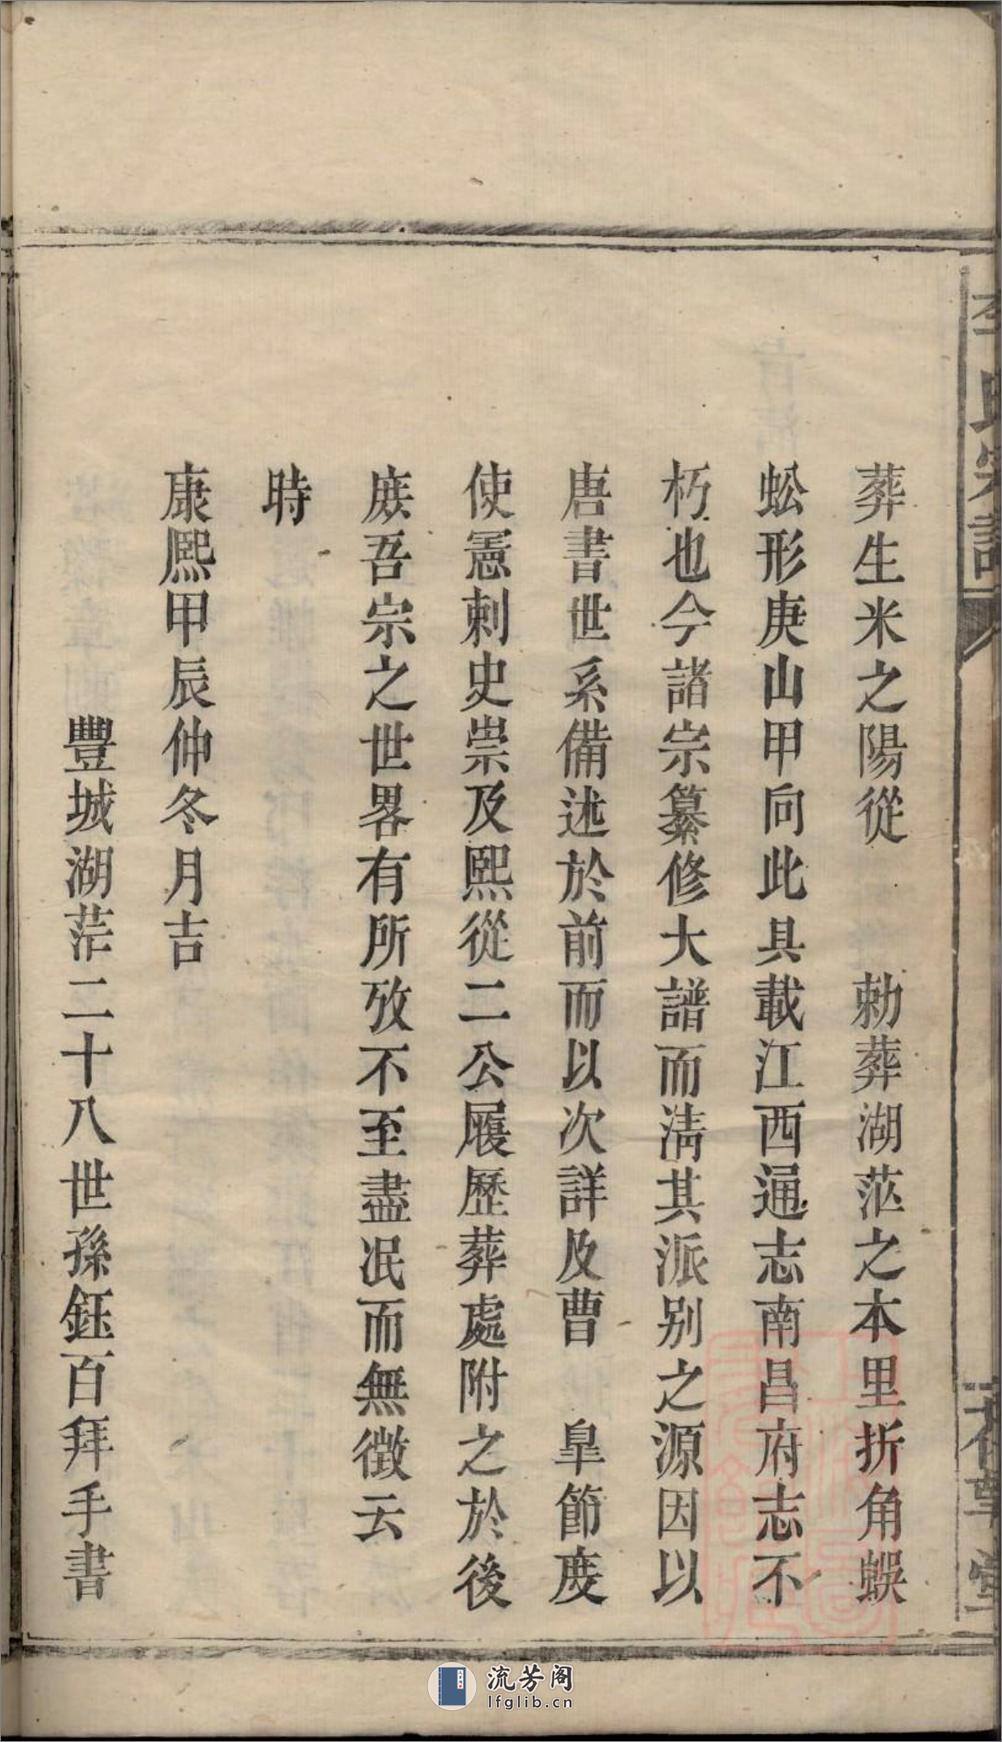 葬生米之陽從　勅葬湖茫之本里折角蜈
蚣形庚山甲向此具載江西通志南昌府志不
朽也今諸宗纂修大譜而淸其派别之源因以
唐書世系備述於前而以次詳及曹　皐節度
使憲刺史崇及熙從二公履歷葬處附之於後
庶吾宗之世畧有所攷不至盡泯而無徵云
時
康熙甲辰仲冬月吉
豐城湖茫二十八世孫鈺百拜手書
李氏宗譜
堂
流芳阁
lfglib.cn